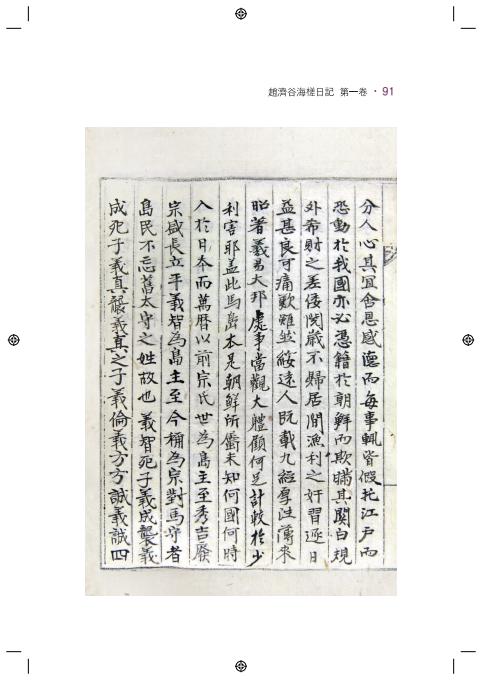 趙濟谷海槎日記 第一卷 · 91
分人心其宜含恩感德而每事輒皆假托江戶而
恐動於我國亦必憑籍於朝鮮而欺瞞其関白規
外希財之差倭閱歲不歸居間漁利之奸習逐日
益甚良可痛歎雖然綏遠人既載九經厚往薄來
昭著羲易大邦處事當觀大軆顧何足計較於少
利害耶盖此馬島本是朝鮮所屬未知何國何時
入於日本而萬曆以前宗氏世為島主至秀吉廢
宗盛長立平義智為島主至今稱為宗對馬守者
島民不忘舊太守之姓故也 義智死子義成襲義
成死子義真襲義真之子義倫義方方誠義誠四